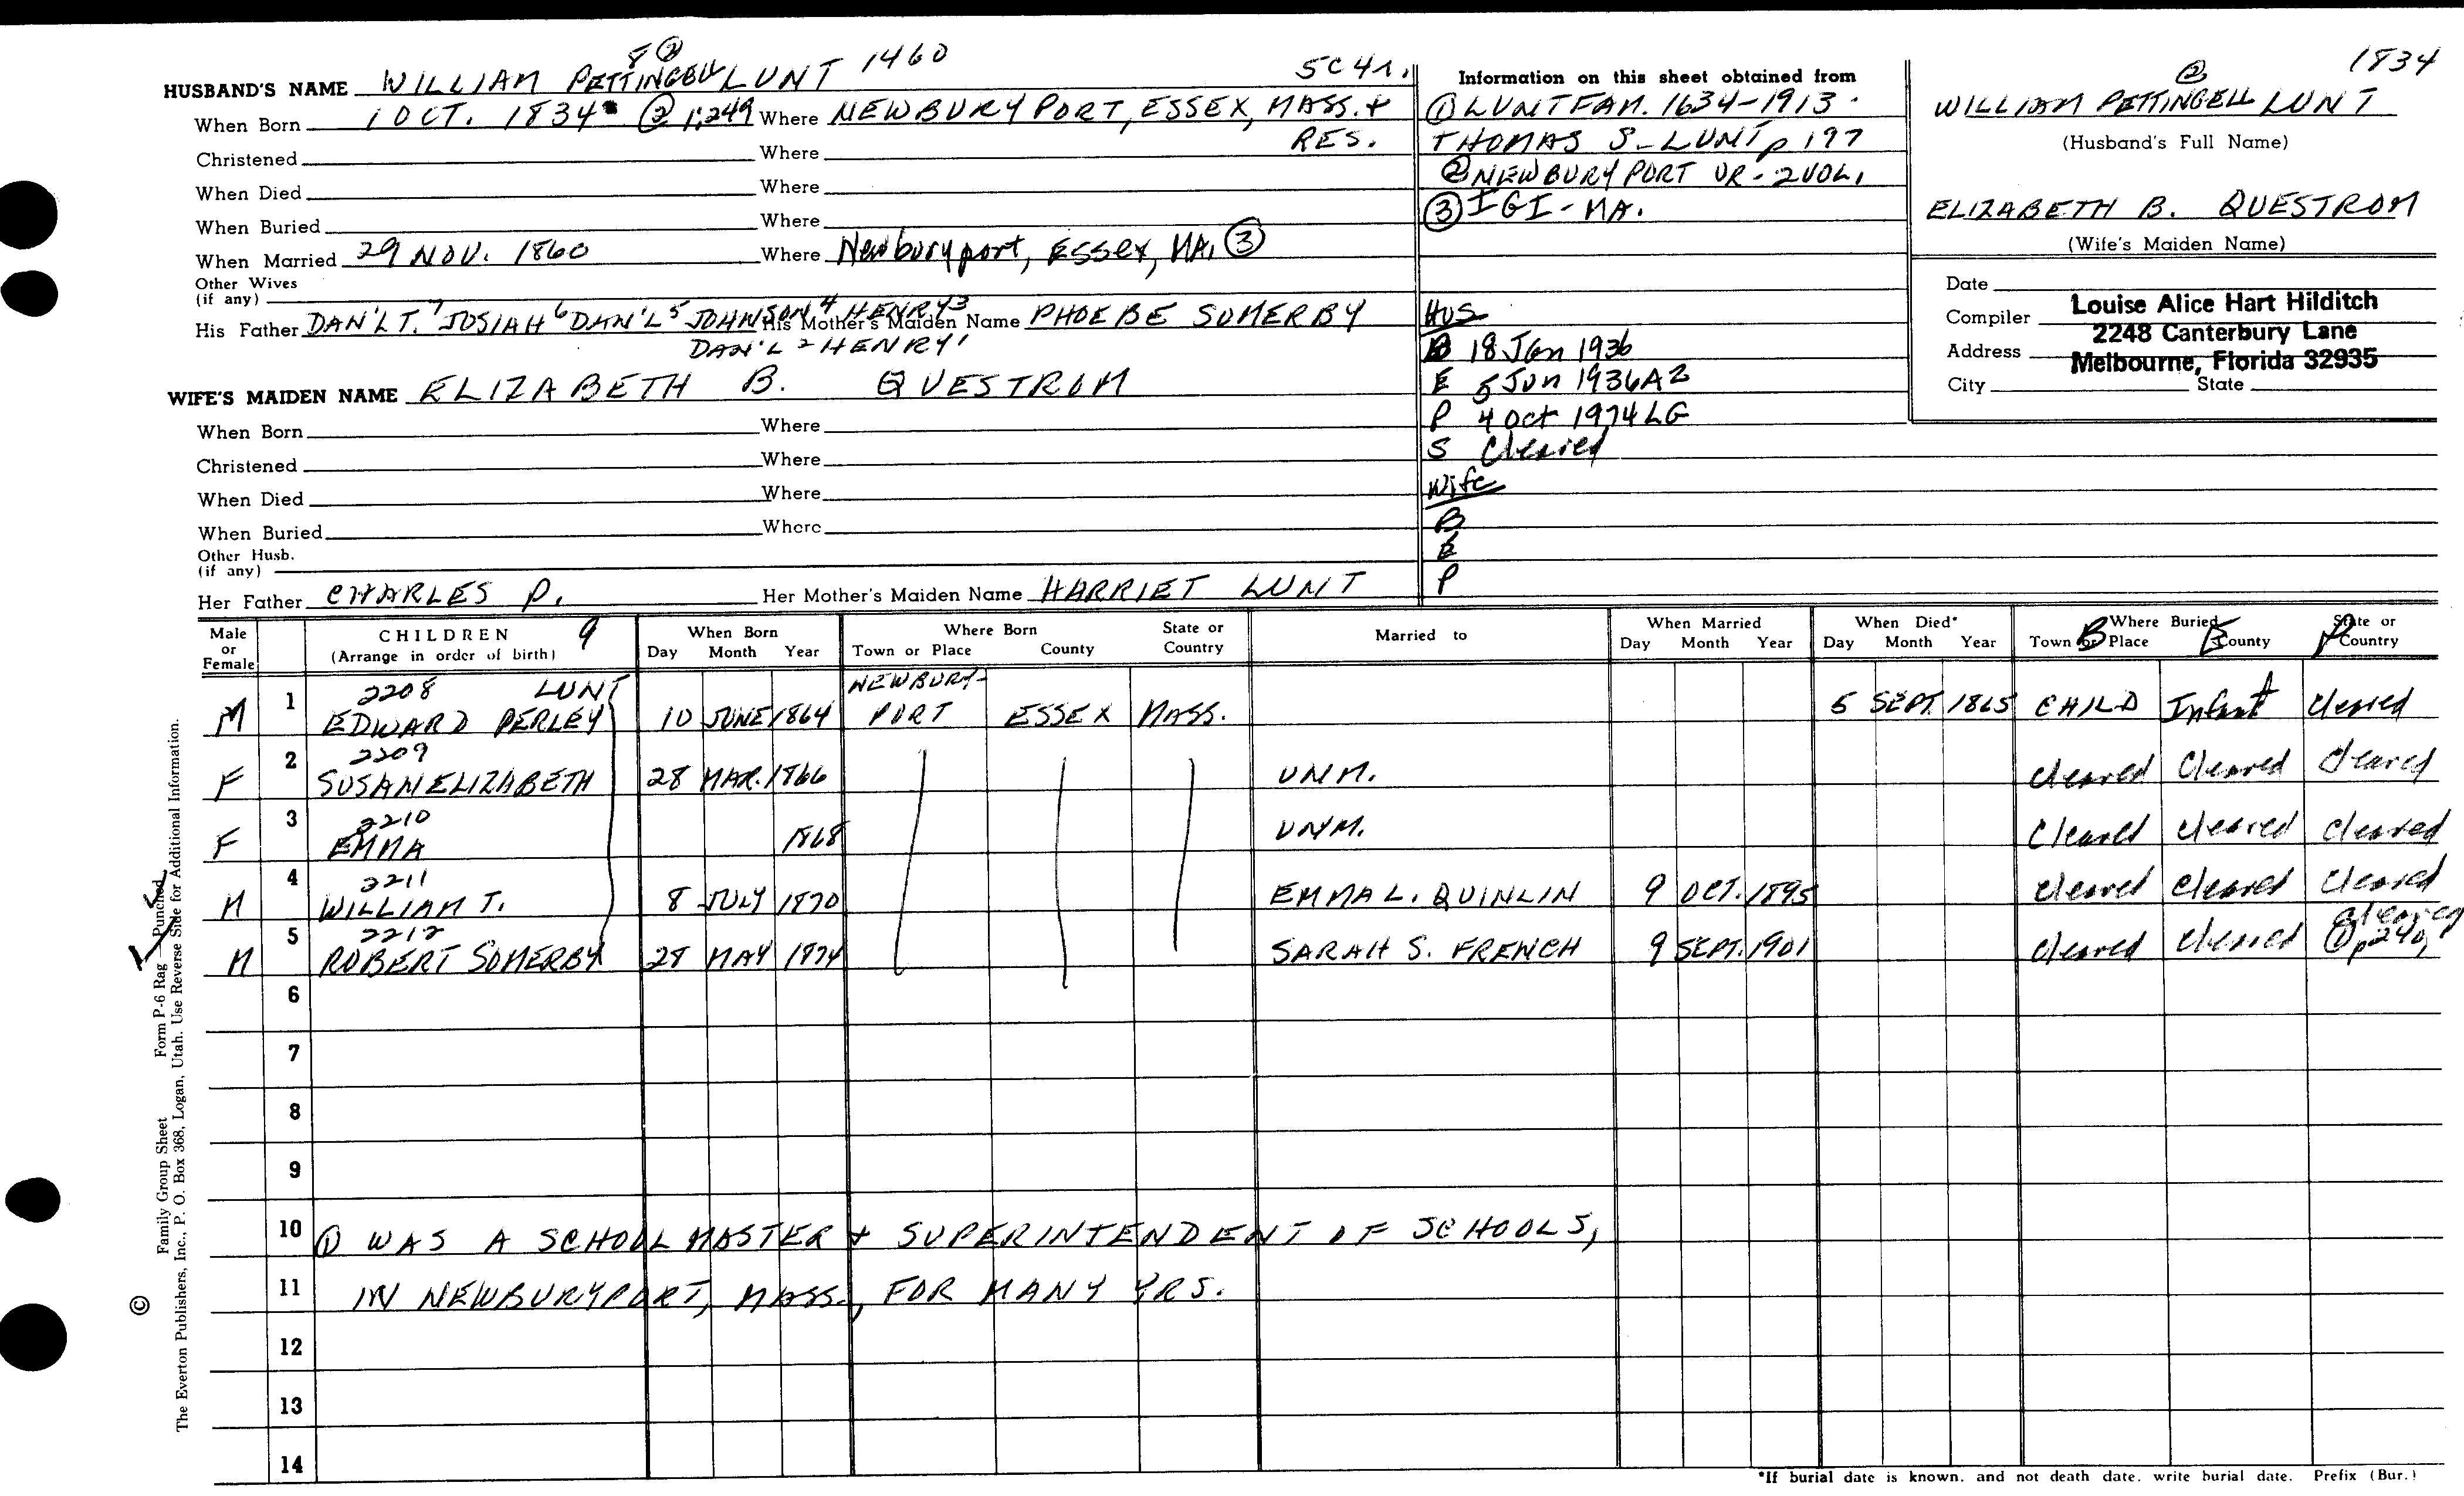 8 ②
HUSBAND'S NAME WILLIAM PETTINGELL LUNT 1460 5C41.
When Born 1 OCT. 1834 ② 1;249 Where NEWBURYPORT, ESSEX, MASS. +
RES.
Christened Where
When Died Where
When Buried Where
When Married 29 NOV. 1860 Where Newburyport, Essex, MA. ③
Other Wives
(if any)
His Father DAN'L T. 7 JOSIAH 6 DAN'L 5 JOHNSON 4 HENRY 3 His Mother's Maiden Name PHOEBE SOMERBY
DAN'L 2 HENRY 1
WIFE'S MAIDEN NAME ELIZABETH B. QUESTROM
When Born Where
Christened Where
When Died Where
When Buried Where
Other Husb.
(if any)
Her Father CHARLES P. Her Mother's Maiden Name HARRIET LUNT
Information on this sheet obtained from
① LUNT FAM. 1634-1913.
THOMAS S. LUNT p 197
② NEWBURYPORT VR - 2VOL,
③ IGI - MA.
HUS
B 18 Jan 1936
E 5 Jun 1936 AZ
P 4 Oct 1974 LG
S Cleared
Wife
B
E
P
1834
②
WILLIAM PETTINGELL LUNT
(Husband's Full Name)
ELIZABETH B. QUESTROM
(Wife's Maiden Name)
Date
Compiler Louise Alice Hart Hilditch
Address 2248 Canterbury Lane
Melbourne, Florida 32935
City State
Male or Female CHILDREN 9 (Arrange in order of birth) When Born Day Month Year Where Born Town or Place County State or Country Married to When Married Day Month Year When Died* Day Month Year Where Buried Town or Place County State or Country B E P
2208 LUNT NEWBURY-
M 1 EDWARD PERLEY 10 JUNE 1864 PORT ESSEX MASS. 5 SEPT. 1865 CHILD Infant Cleared
2209
F 2 SUSAN ELIZABETH 28 MAR. 1866 UNM. Cleared Cleared Cleared
2210
F 3 EMMA 1868 UNM. Cleared Cleared Cleared
2211
M 4 WILLIAM T. 8 JULY 1870 EMMA L. QUINLIN 9 OCT. 1895 Cleared Cleared Cleared
2212
M 5 ROBERT SOMERBY 28 MAY 1874 SARAH S. FRENCH 9 SEPT. 1901 Cleared Cleared Cleared
① p240,
6
7
8
9
10 ① WAS A SCHOOL MASTER + SUPERINTENDENT OF SCHOOLS,
11 IN NEWBURYPORT, MASS., FOR MANY YRS.
12
13
14
*If burial date is known, and not death date, write burial date. Prefix (Bur.)
© Family Group Sheet Form P-6 Rag — Punched
The Everton Publishers, Inc., P. O. Box 368, Logan, Utah. Use Reverse Side for Additional Information.